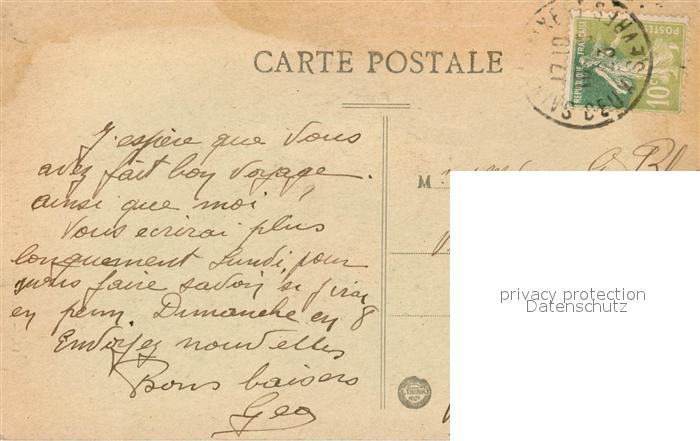 CARTE POSTALE
DEUX SEVRES
REPUBLIQUE FRANÇAISE
POSTES
10c
J'espère que vous
avez fait bon voyage.
ainsi que moi
Vous ecrirai plus
longuement Lundi pour
vous faire savoir si j'irai
en perm. Dimanche en 8
Envoyez nouvelles
Bons baisers
Geo
M
G. Bl
privacy protection
Datenschutz